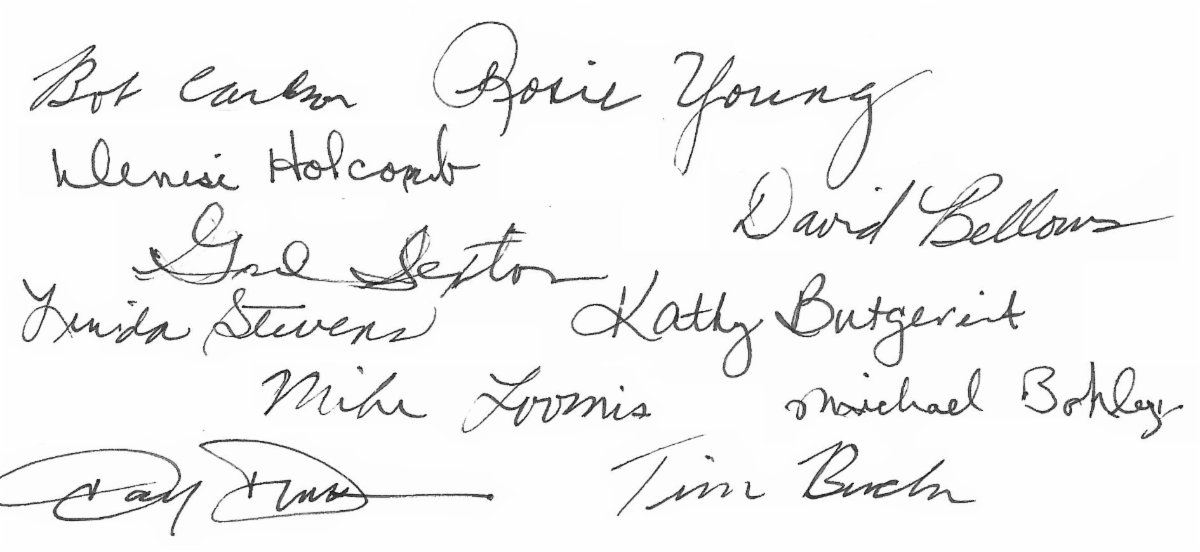 Bob Carlson Rosie Young
Denise Holcomb
David Bellows
Sexton
Linda Stevens Kathy Butgereit
Mike Loomis Michael Bohley
Tim